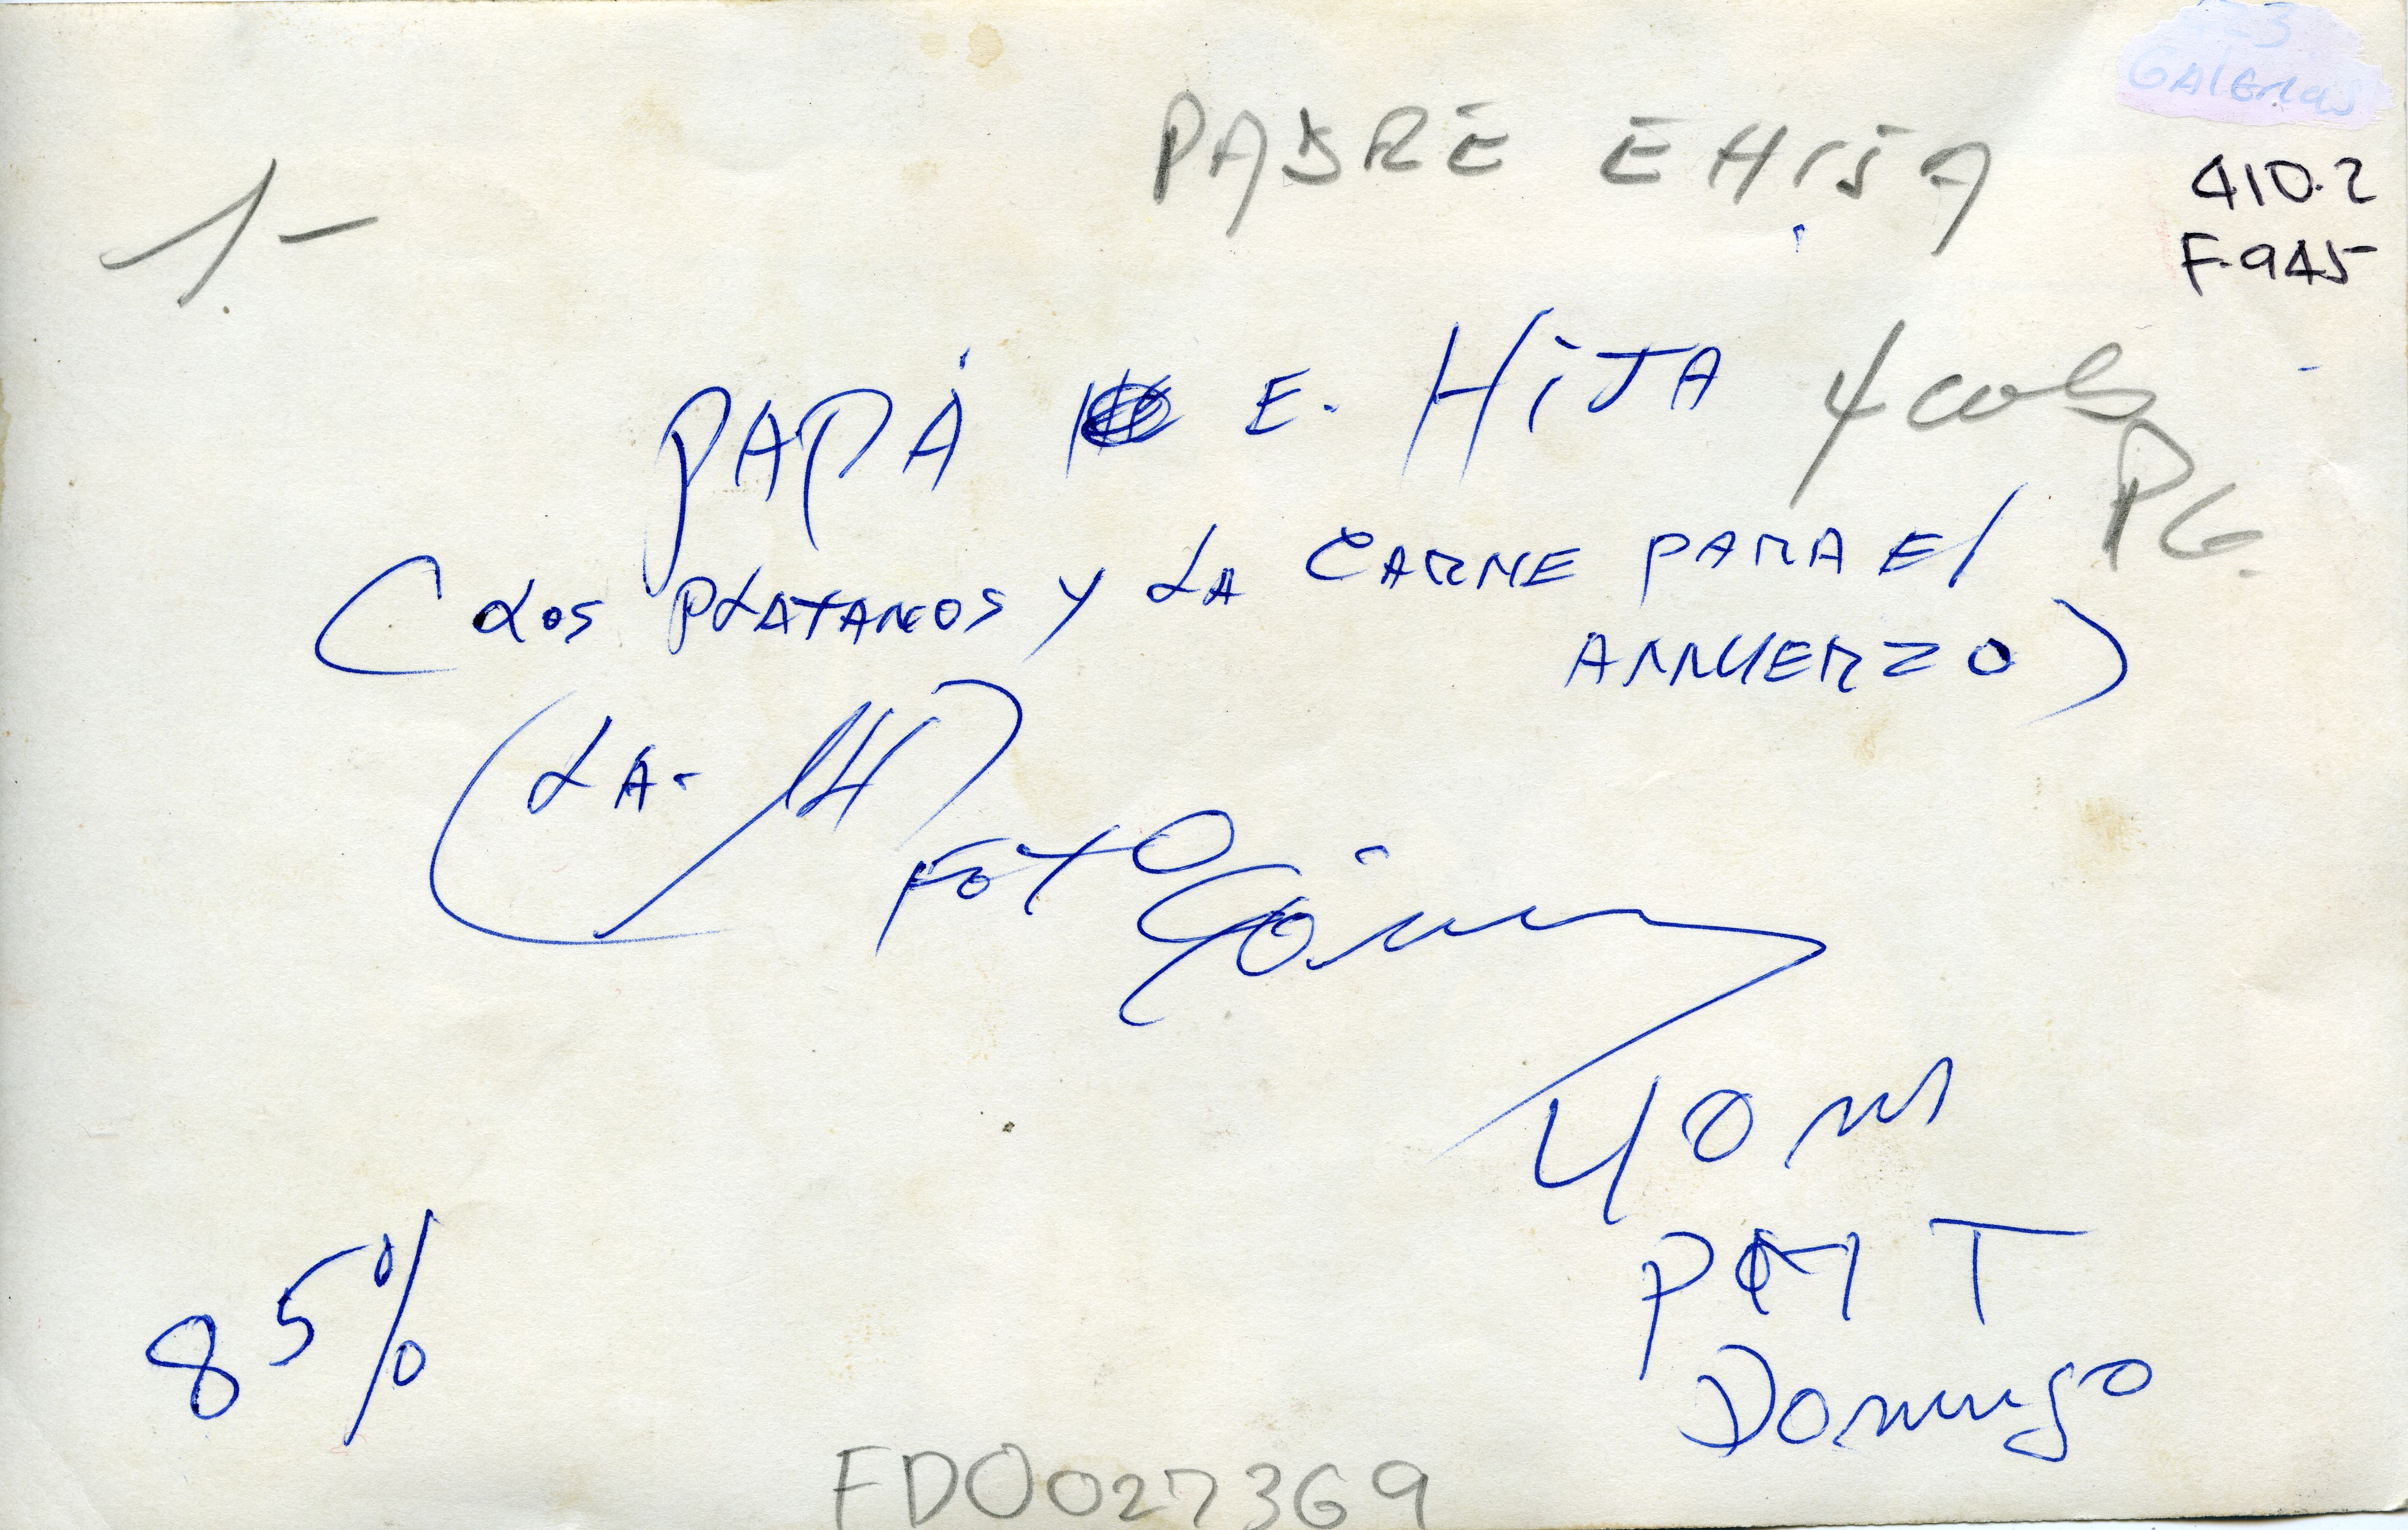 23
Galerias
PADRE E HIJA
410.2
F-945
1-
PAPÁ E. HiJA
4 cols
PG.
(LOS PLATANOS Y LA CARNE PARA El
ALMUERZO)
(LA-
FOTO Gómez
40 m
Domingo
85%
FDO027369